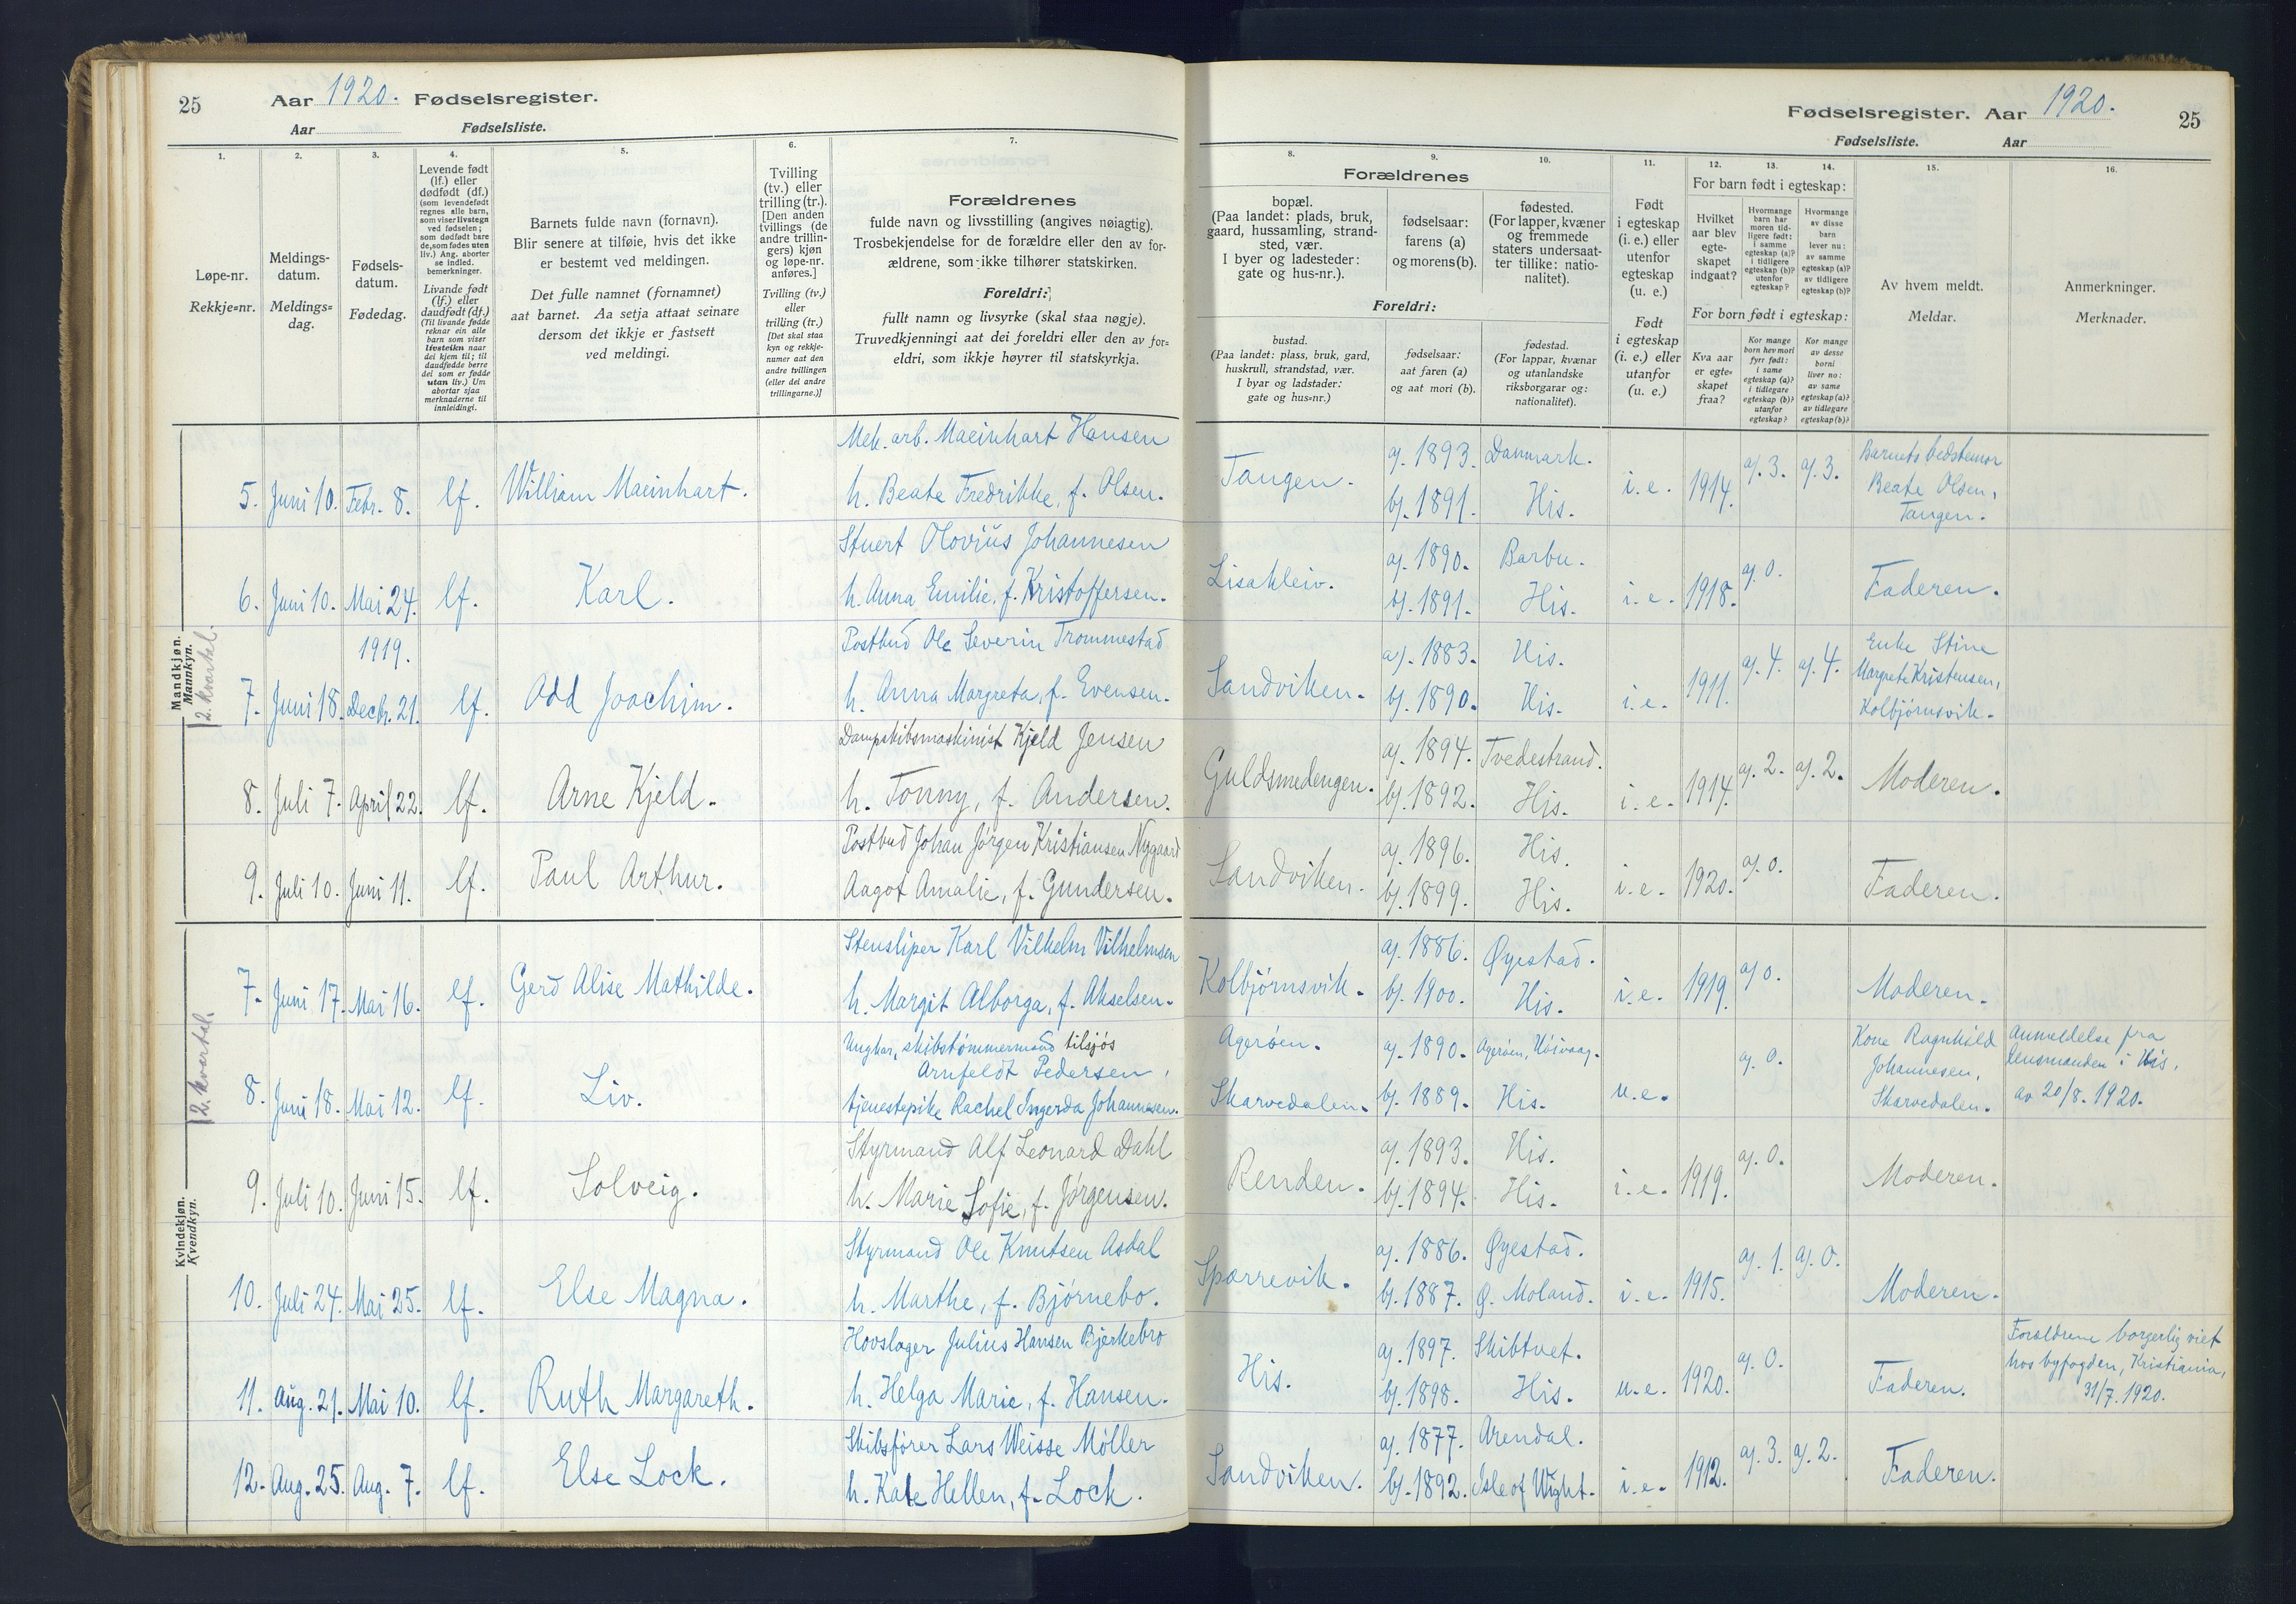 25
Aar 1920. Fødselsregister.
Aar Fødselsliste.
1. 2. 3. 4. 5. 6. 7.
Løpe-nr.
Rekkje=nr.
Meldings-
datum.
Meldings=
dag.
Fødsels-
datum.
Fødedag.
Levende født
(lf.) eller
dødfødt (df.)
(som levendefødt
regnes alle barn,
som viser livstegn
ved fødselen;
som dødfødt bare
de, som fødes uten
liv.) Ang. aborter
se indled.
bemerkninger.
Livande født
(lf.) eller
daudfødt (df.)
(Til livande fødde
reknar ein alle
barn som viser
livsteikn naar
dei kjem til; til
daudfødde berre
dei som er fødde
utan liv.) Um
abortar sjaa
merknaderne til
innleidingi.
Barnets fulde navn (fornavn).
Blir senere at tilføie, hvis det ikke
er bestemt ved meldingen.
Det fulle namnet (fornamnet)
aat barnet. Aa setja attaat seinare
dersom det ikkje er fastsett
ved meldingi.
Tvilling
(tv.) eller
trilling (tr.).
[Den anden
tvillings (de
andre trillin-
gers) kjøn
og løpe-nr.
anføres.]
Tvilling (tv.)
eller
trilling (tr.)
[Det skal staa
kyn og rekkje-
numer aat den
andre tvillingen
(eller dei andre
trillingarne.)]
Forældrenes
fulde navn og livsstilling (angives nøiagtig).
Trosbekjendelse for de forældre eller den av for-
ældrene, som ikke tilhører statskirken.
Foreldri:
fullt namn og livsyrke (skal staa nøgje).
Truvedkjenningi aat dei foreldri eller den av for=
eldri, som ikkje høyrer til statskyrkja.
Mandkjøn.
Mannkyn.
2. kvartal.
Mek. arb. Maeinhart Hansen
5. Juni 10. Febr. 8. lf. William Maeinhart. h. Beate Fredrikke, f. Olsen.
Stuert Olovius Johannesen
6. Juni 10. Mai 24. lf. Karl. h. Anna Emilie, f. Kristoffersen.
1919. Postbud Ole Severin Trommestad
7. Juni 18. Decb. 21. lf. Odd Joachim. h. Anna Margreta, f. Evensen.
Dampskibsmaskinist Kjeld Jensen
8. Juli 7. April 22. lf. Arne Kjeld. h. Tonny, f. Andersen.
Postbud Johan Jørgen Kristiansen Nygaard
9. Juli 10. Juni 11. lf. Paul Arthur. Aagot Amalie, f. Gundersen.
Kvindekjøn.
Kvendkyn.
2. kvartal.
Stensliper Karl Vilhelm Vilhelmsen
7. Juni 17. Mai 16. lf. Gerd Alise Mathilde. h. Margit Alborga, f. Akselsen.
Ungkar, skibstømmermand tilsjøs
Arnfeldt Pedersen,
8. Juni 18. Mai 12. lf. Liv. tjenestepike Rachel Ingerda Johannesen.
Styrmand Alf Leonard Dahl
9. Juli 10. Juni 15. lf. Solveig. h. Marie Sofie, f. Jørgensen.
Styrmand Ole Knutsen Asdal
10. Juli 24. Mai 25. lf. Else Magna. h. Marthe, f. Bjørnebo.
Hovslager Julius Hansen Bjerkebro
11. Aug. 21. Mai 10. lf. Ruth Margareth. h. Helga Marie, f. Hansen.
Skibsfører Lars Weisse Møller
12. Aug. 25. Aug. 7. lf. Else Lock. h. Kate Hellen, f. Lock.
Fødselsregister. Aar 1920. 25
Fødselsliste. Aar
8. 9. 10. 11. 12. 13. 14. 15. 16.
Forældrenes
bopæl.
(Paa landet: plads, bruk,
gaard, hussamling, strand-
sted, vær.
I byer og ladesteder:
gate og hus-nr.).
fødselsaar:
farens (a)
og morens (b).
fødested.
(For lapper, kvæner
og fremmede
staters undersaat-
ter tillike: natio-
nalitet).
Foreldri:
bustad.
(Paa landet: plass, bruk, gard,
huskrull, strandstad, vær.
I byar og ladstader:
gate og hus=nr.)
fødselsaar:
aat faren (a)
og aat mori (b).
fødestad.
(For lappar, kvænar
og utanlandske
riksborgarar og:
nationalitet).
Født
i egteskap
(i. e.) eller
utenfor
egteskap
(u. e.)
Født
i egteskap
(i. e.) eller
utanfor
(u. e.)
For barn født i egteskap:
Hvilket
aar blev
egte-
skapet
indgaat?
Hvormange
barn har
moren tid-
ligere født:
i samme
egteskap (a)?
i tidligere
egteskap (b)?
utenfor
egteskap?
Hvormange
av disse
barn
lever nu:
av samme
egteskap (a)?
av tidligere
egteskap (b)?
For born født i egteskap:
Kva aar
er egte=
skapet
fraa?
Kor mange
born hev mori
fyrr født:
i same
egteskap (a)?
i tidlegare
egteskap (b)?
utanfor
egteskap?
Kor mange
av desse
borni
liver no:
av same
egteskap (a)?
av tidlegare
egteskap (b)?
Av hvem meldt.
Meldar.
Anmerkninger.
Merknader.
a). 1893. Danmark. a). 3. a). 3. Barnets bedstemor
Tangen. i. e. 1914. Beate Olsen,
b). 1891. His. Tangen.
a). 1890. Barbu. a). 0.
Lisakleiv. b). 1891. His. i. e. 1918. Faderen.
a). 1883. His. a). 4. a). 4. Enke Stine
Sandviken. i. e. 1911. Margrete Kristensen,
b). 1890. His. Kolbjørnsvik.
a). 1894. Tvedestrand. a). 2. a). 2.
Guldsmedengen. b). 1892. His. i. e. 1914. Moderen.
a). 1896. His. a). 0.
Sandviken. b). 1899. His. i. e. 1920. Faderen.
a). 1886. Øyestad. a). 0.
Kolbjørnsvik. b). 1900. His. i. e. 1919. Moderen.
Agerøen. a). 1890. Agerøen, Høivaag. a). 0. Kone Ragnhild Anmeldelse fra
Johannesen, lensmanden i His,
Skarvedalen. b). 1889. His. u. e. Skarvedalen. av 20/8. 1920.
a). 1893. His. a). 0.
Renden. b). 1894. His. i. e. 1919. Moderen.
a). 1886. Øyestad. a). 1. a). 0.
Spærrevik. b). 1887. Ø. Moland. i. e. 1915. Moderen.
a). 1897. Skibtvet. a). 0. Forældrene borgerlig viet
His. hos byfogden, Kristiania,
b). 1898. His. u. e. 1920. Faderen. 31/7. 1920.
a). 1877. Arendal. a). 3. a). 2.
Sandviken. b). 1892. Isle of Wight. i. e. 1912. Faderen.